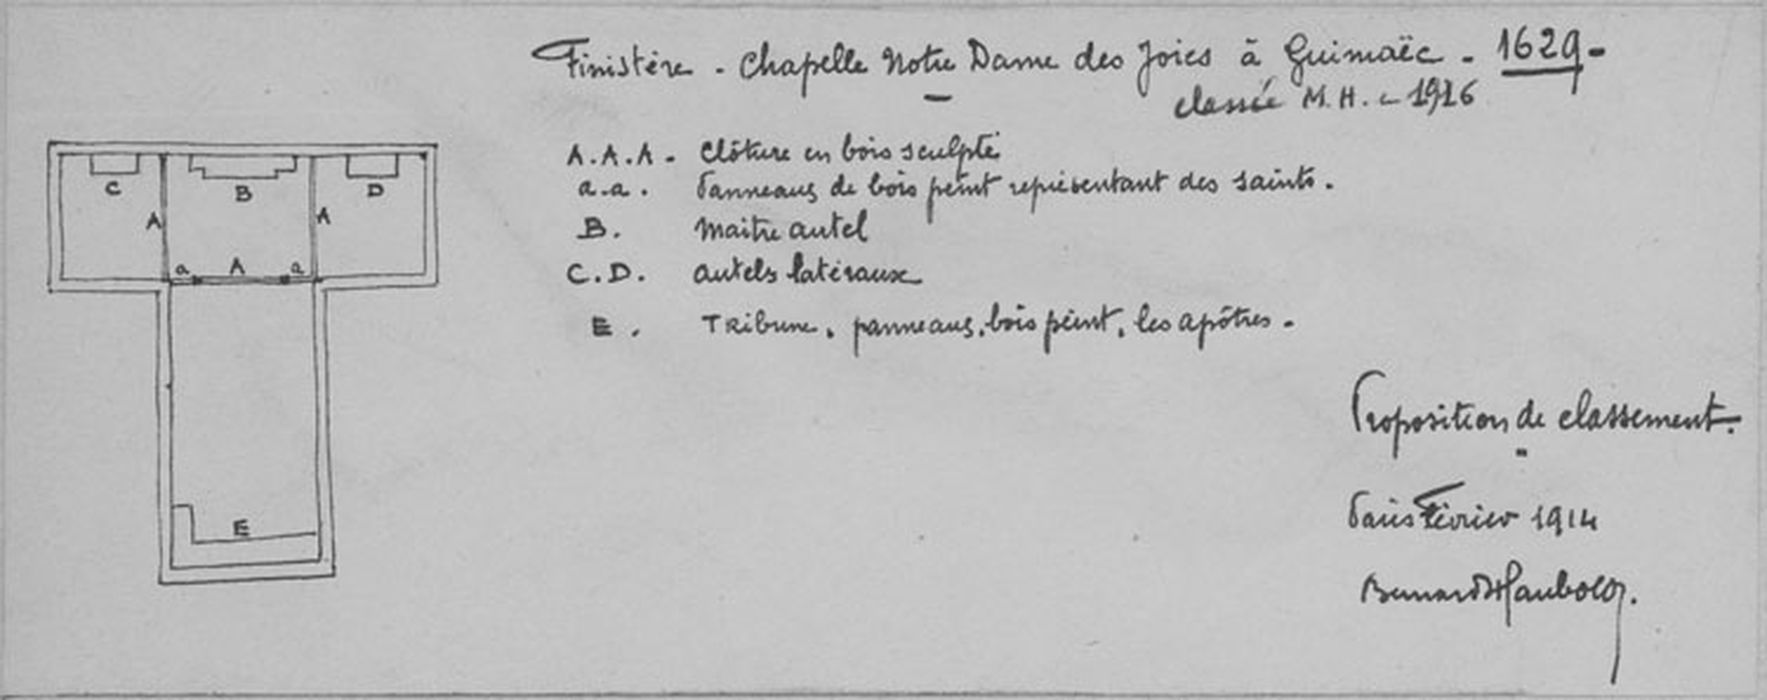 Finistère - Chapelle Notre Dame des Joies à Guimaëc - 1629 -
classée M.H. - 1916
C
B
D
A
A
a
A
a
E
A.A.A - Clôture en bois sculpté
a.a. Panneaux de bois peint représentant des saints.
B. Maitre autel
C.D. autels latéraux
E. Tribune, panneaux, bois peint, les apôtres.
Proposition de classement.
Paris Février 1914
Bernard Haubold.